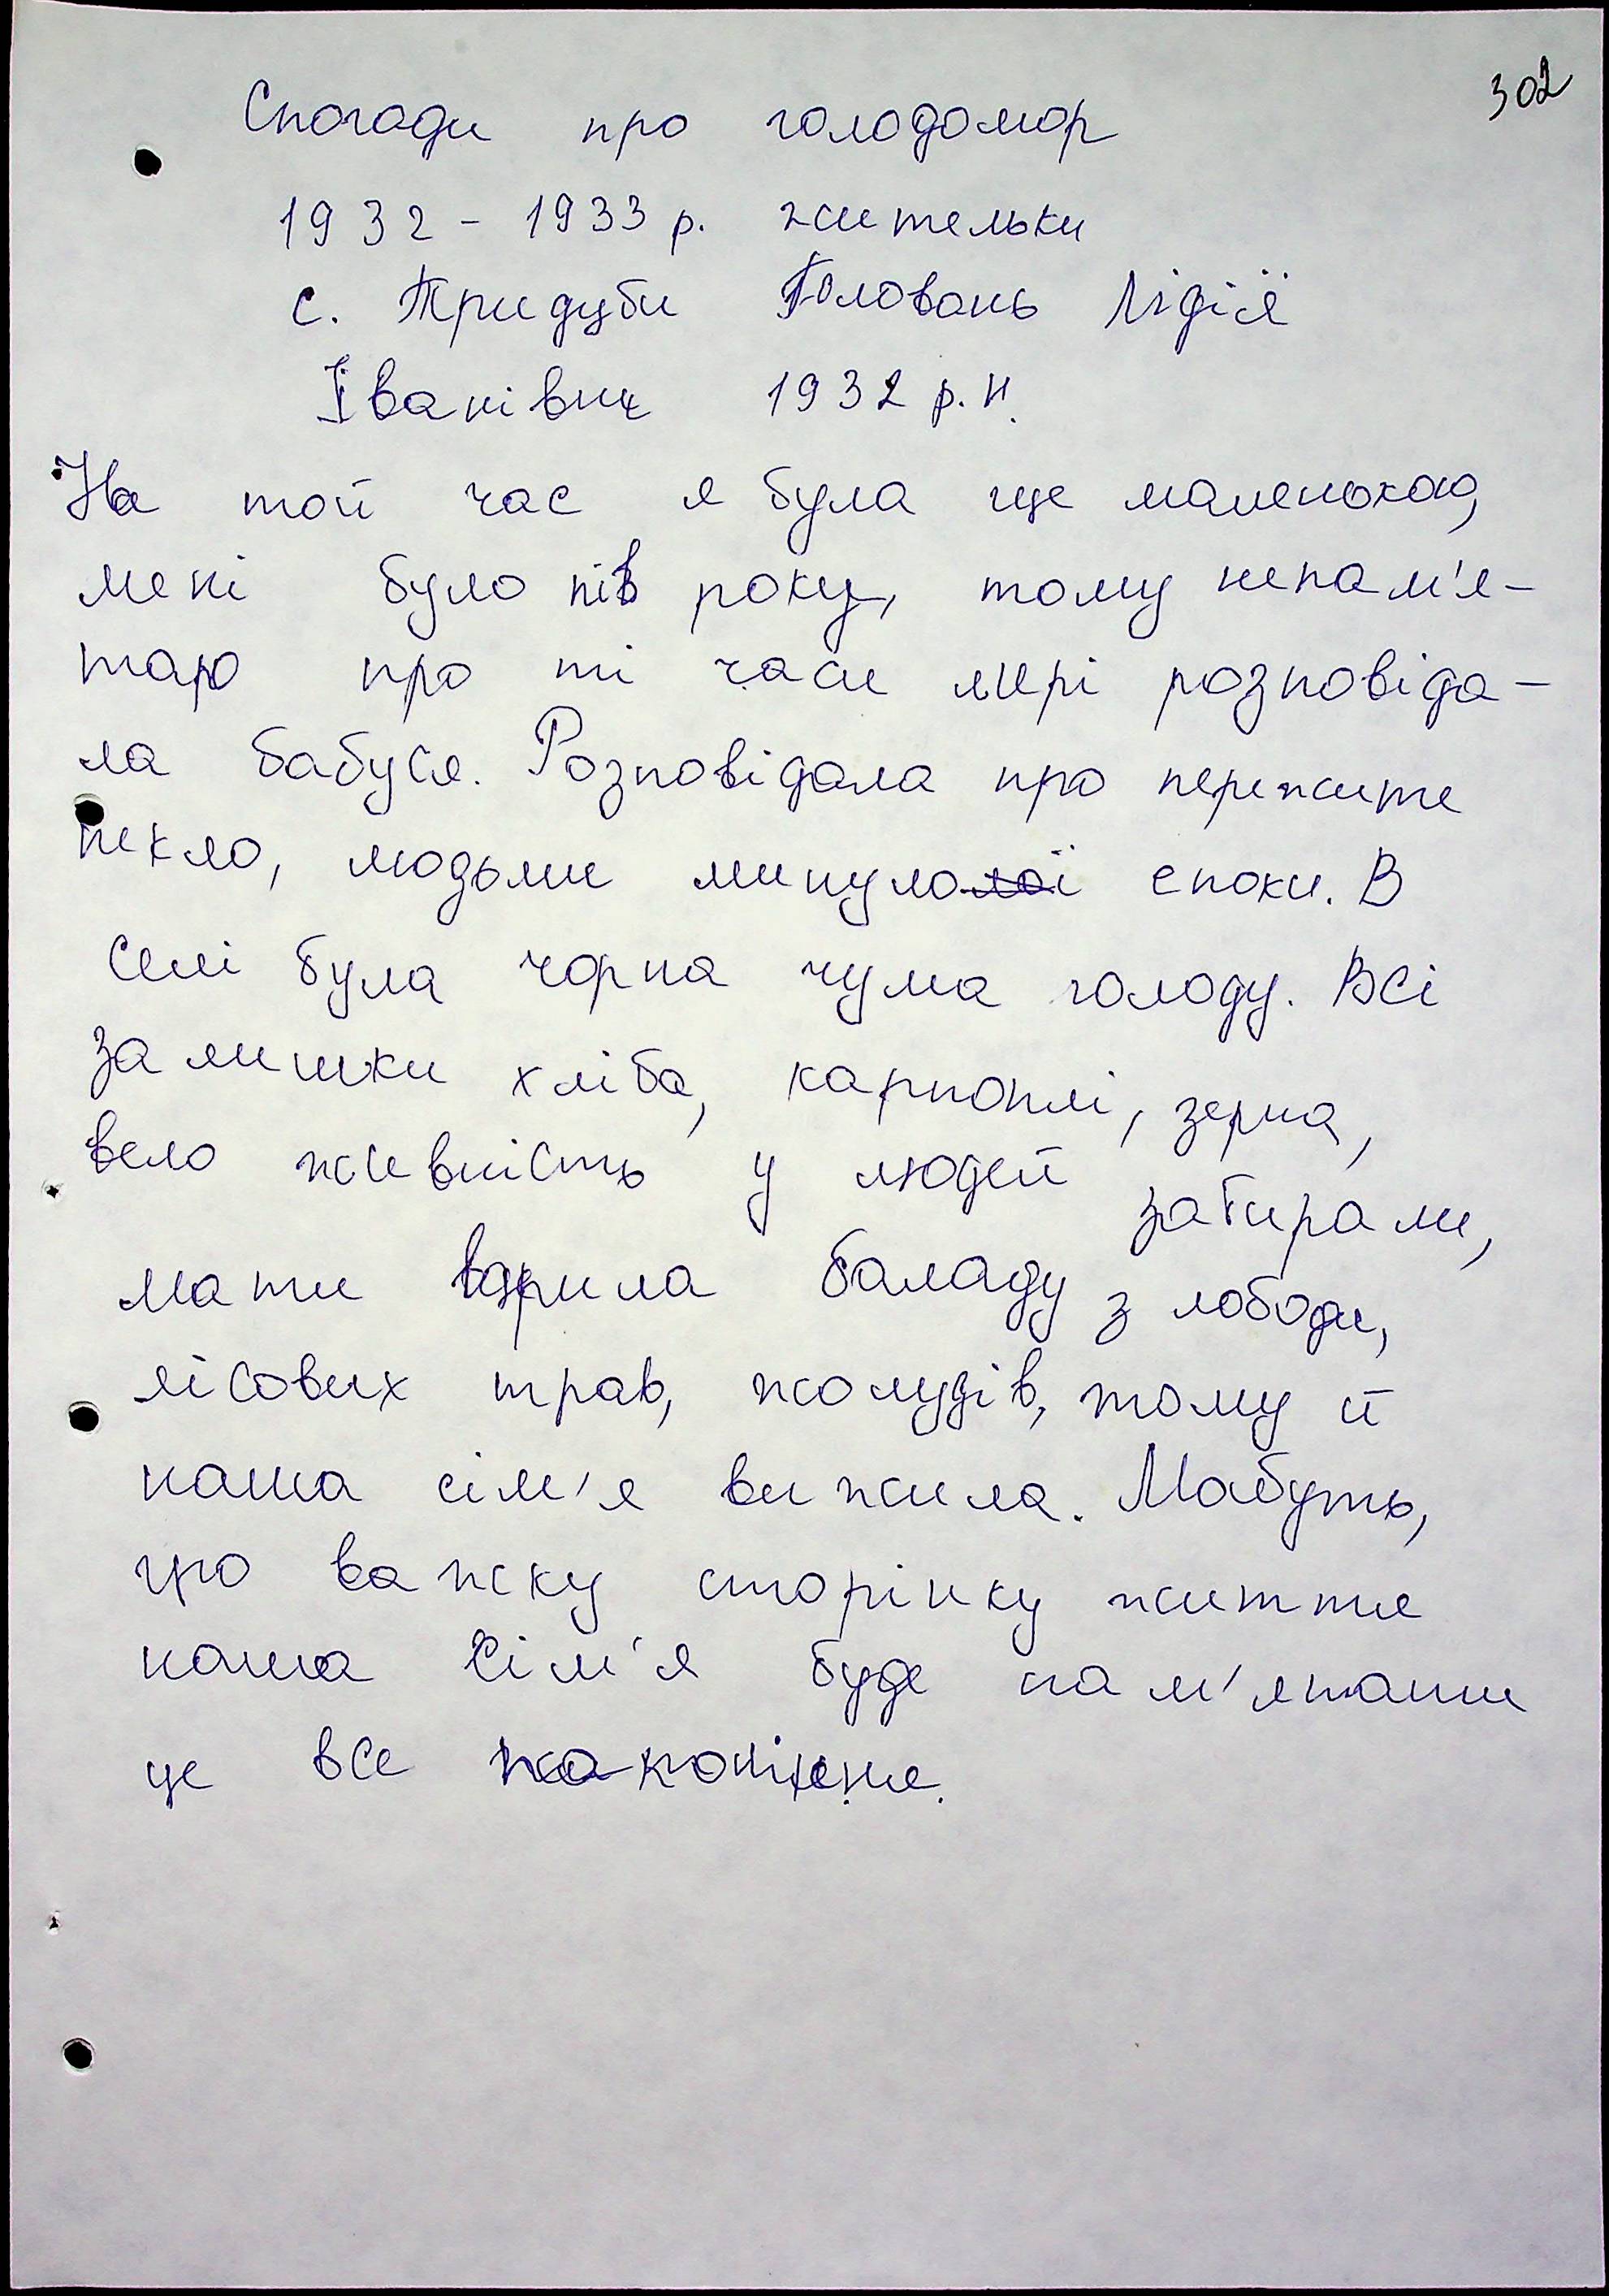 302
Спогади про голодомор
1932-1933 р. жительки
с. Тридуби Головань Лідії
Іванівни 1932 р.н.
На той час я була ще маленькою,
мені було пів року, тому непам'я-
таю про ті часи мені розповіда-
ла бабуся. Розповідала про пережите
пекло, людьми минулої епохи. В
селі була чорна чума голоду. Всі
залишки хліба, картоплі, зерна,
вело живність у людей забирали,
мати варила баланду з лободи,
лісових трав, жолудів, тому й
наша сім'я вижила. Мабуть,
цю важку сторінку життя
наша сім'я буде пам'ятати
це все